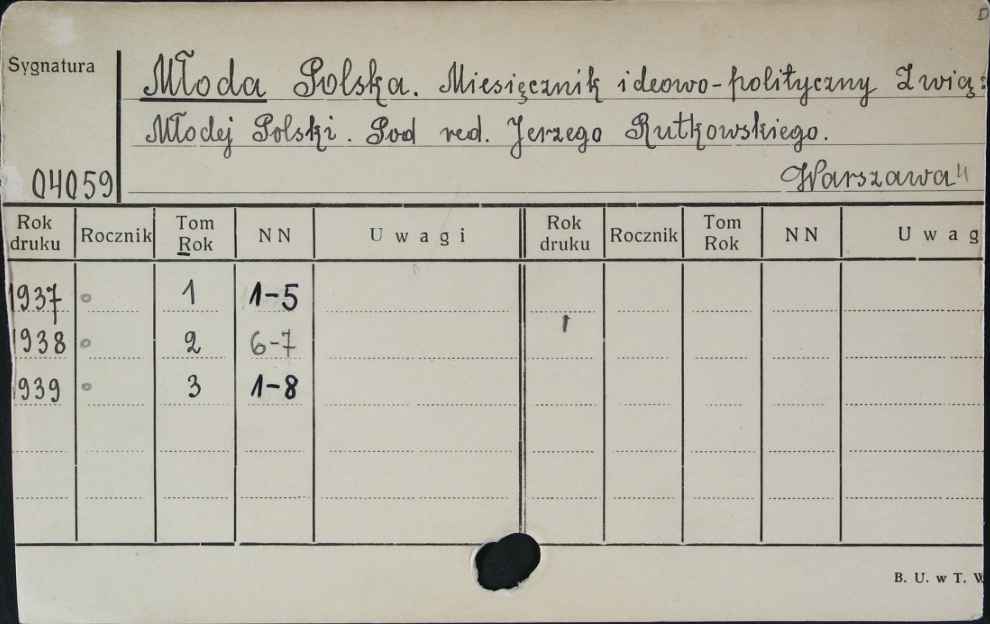 Sygnatura
Młoda Polska. Miesięcznik ideowo-polityczny Zwią:
Młodej Polski. Pod red. Jerzego Rutkowskiego.
04059 Warszawa
Rok druku Rocznik Tom Rok NN Uwagi Rok druku Rocznik Tom Rok NN Uwag
1937 1 1-5
1938 2 6-7
1939 3 1-8
B. U. w T.